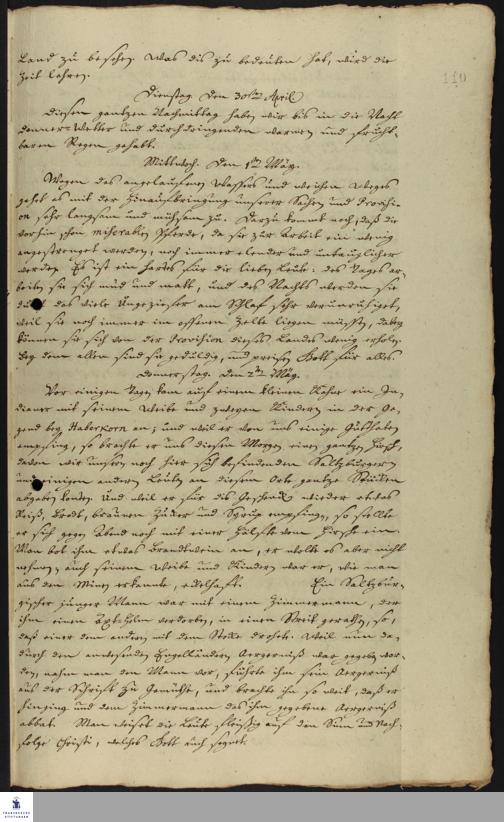 Land zu besehen. Was dis zu bedeuten hat, wird die
Zeit lehren.
110
Dienstag den 30ten April
Diesen gantzen Nachmittag haben wir bis in die Nacht
Donner-Wetter und durchdringenden warmen und frucht-
baren Regen gehabt.
Mittwoch. den 1ten May.
Wegen des angelauffenen Wassers und weichen Weges
gehet es mit der Hinaufbringung unserer Sachen und Provisi-
on sehr langsam und mühsam zu. Darzu kommt noch, daß die
vorhin schon miserablen Pferde, da sie zur Arbeit ein wenig
angestrenget werden, noch immer elender und untauglicher
werden. Es ist ein hartes für die lieben Leute: des Tages ar-
beiten sie sich müd und matt, und des Nachts werden sie
durch das viele Ungeziefer am Schlaf sehr verunruhiget,
weil sie noch immer in offenen Zelte liegen müssen, dabey
können sie sich von der Provision dieses Landes wenig erholen.
Bey dem allen sind sie geduldig, und preisen Gott für alles.
Donnerstag. den 2ten May.
Vor einigen Tagen kam auf einem kleinen Kahne ein In-
dianer mit seinem Weibe und zweyen Kindern in der Ge-
gend bey Habercorn an; und weil er von uns einige Gutthaten
empfing, so brachte er uns diesen Morgen einen gantzen Hirsch,
davon wir unsern noch hier sich befindenden Saltzburgern
und einigen andern Leuten an diesem Orte gantze Stücken
abgeben konten. Und weil er für dis Geschenck wieder etwas
Reiß, Brodt, braunen Zucker und Syrup empfinge, so stellte
er sich gegen Abend noch mit einer Hälfte vom Hirsche ein.
Man bot ihm etwas Brandtwein an, er wolte es aber nicht
nehmen, auch seinem Weibe und Kindern war er, wie man
aus den Minen erkannte, ekelhaft. Ein Saltzbur-
gischer junger Mann war mit einem Zimmermann, der
ihm einen Axthelm verdorben, in einen Streit gerathen, so,
daß einer dem andern mit dem Stocke drohete. Weil nun da-
durch den anwesenden Engelländern Aergerniß war gegeben wor-
den, nahm man den Mann vor, führte ihm sein Aergerniß
aus der Schrift zu Gemüthe, und brachte ihn so weit, daß er
hinging und dem Zimmermann das ihm gegebene Aergerniß
abbat. Man weiset die Leute fleißig auf den Sinn und Nach-
folge Christi, welches Gott auch segnet.
FRANCKESCHE
STIFTUNGEN